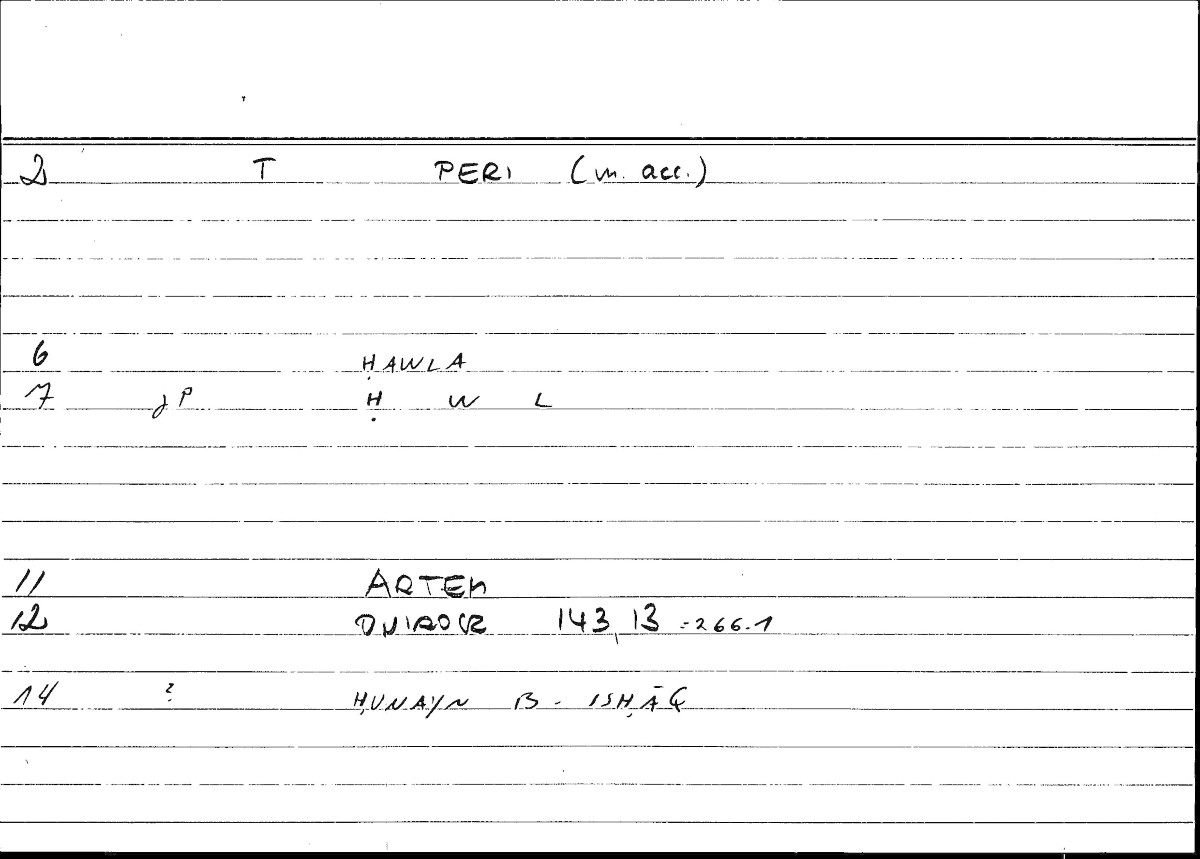 2 T PERI (m. acc.)
6 ḤAWLA
7 JP Ḥ W L
11 ARTEM
12 ONIROCR 143,13 = 266.1
14 ? ḤUNAYN B. ISḤĀQ